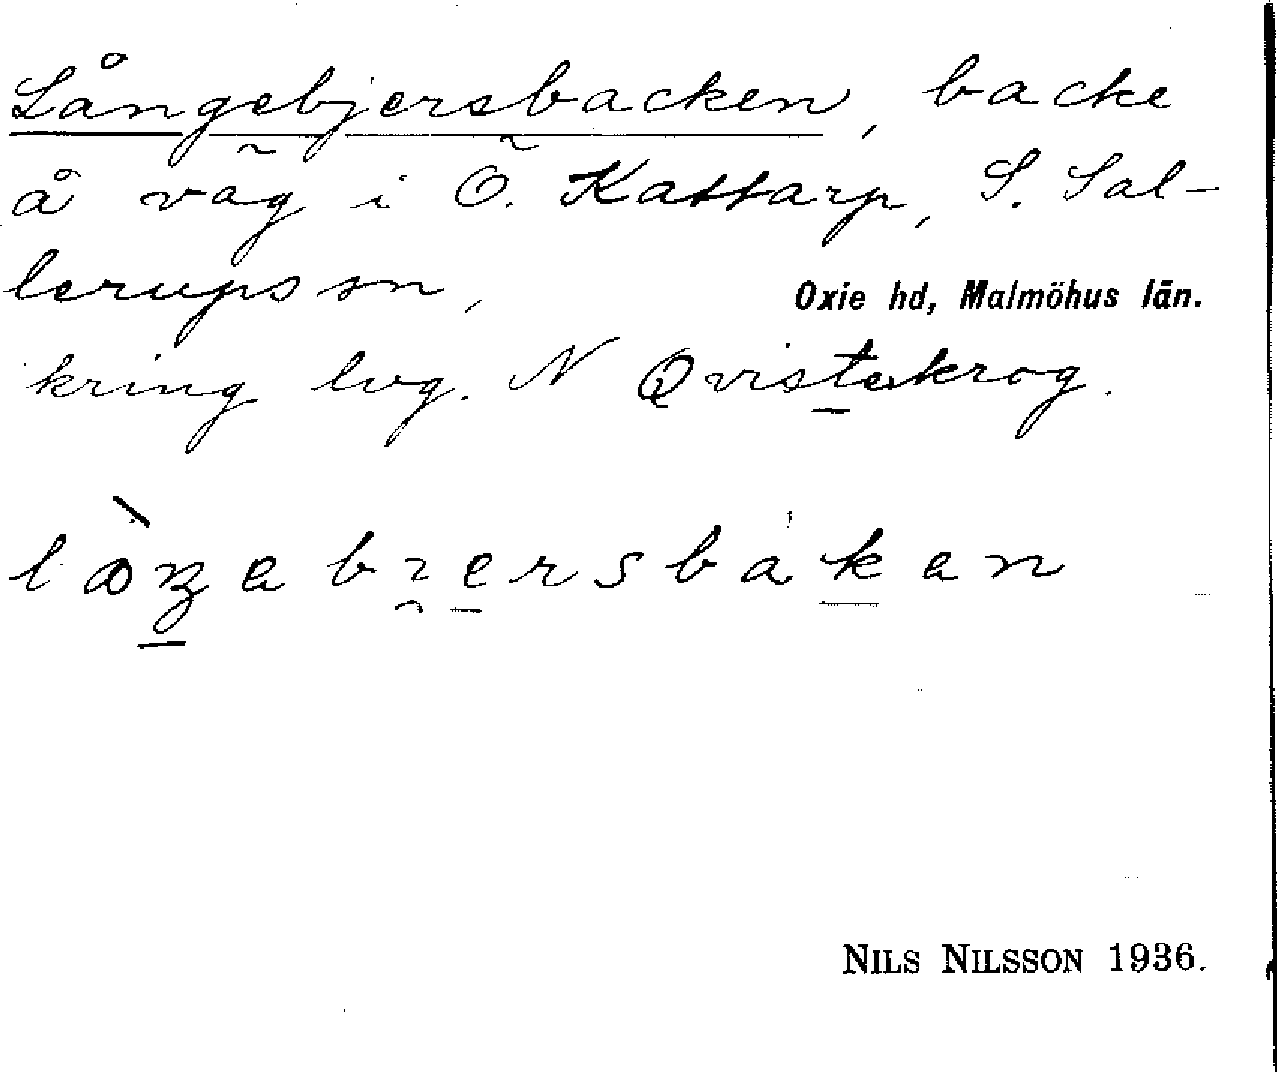 Långebjersbacken, backe
å väg i Ö. Kattarp, S. Sal-
lerups sn, Oxie hd, Malmöhus län.
kring lvg. N Qvistakrog.
NILS NILSSON 1936.